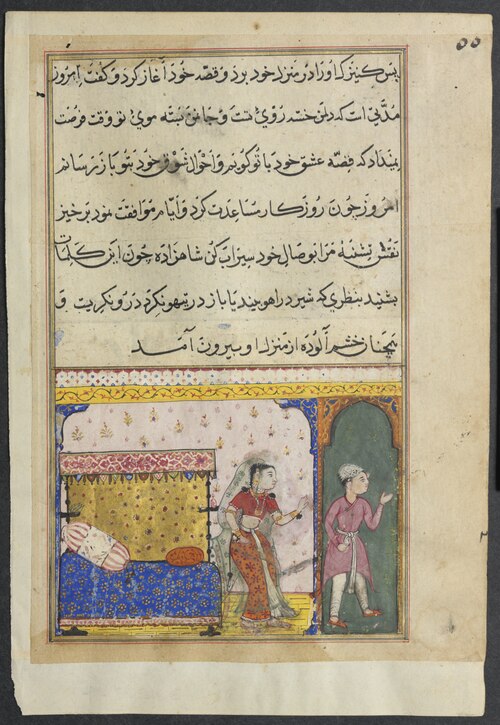 ٥٥
پس کنیزک او را در منزل خود برد و قصه خود آغاز کرد و گفت امروز
مدتی است که دل من خسته روی تست و جان من بسته موی تو وقت فرصت
نمیداد که قصه عشق خود با تو گویم و احوال شوق خود بتو باز رسانم
امروز چون روزگار مساعدت کرد و ایام موافقت نمود برخیز
نفس تشنه مرا بوصال خود سیراب کن شاهزاده چون این کلمات
بشنید بنظری که شیر در اهو بیند یا باز در تیهو نکرد درو نکریست و
همچنان خشم آلوده از منزل او بیرون آمد